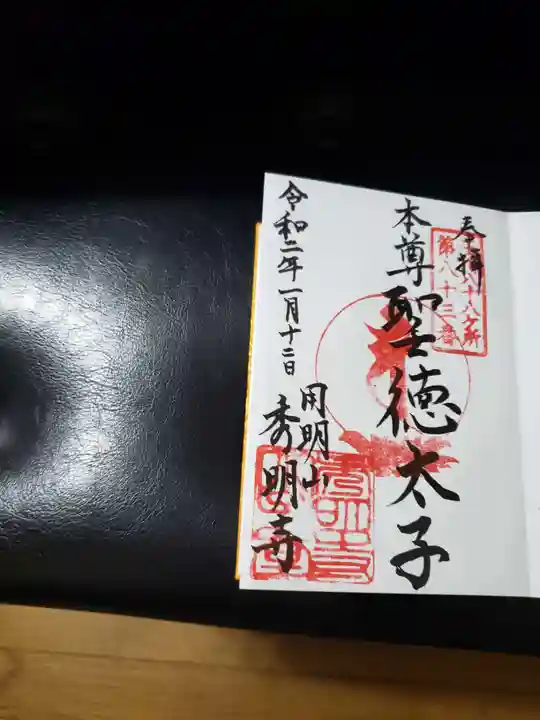 奉拝
八十八ヶ所
第八十三番
本尊聖徳太子
令和二年一月十二日
用明山
秀明寺